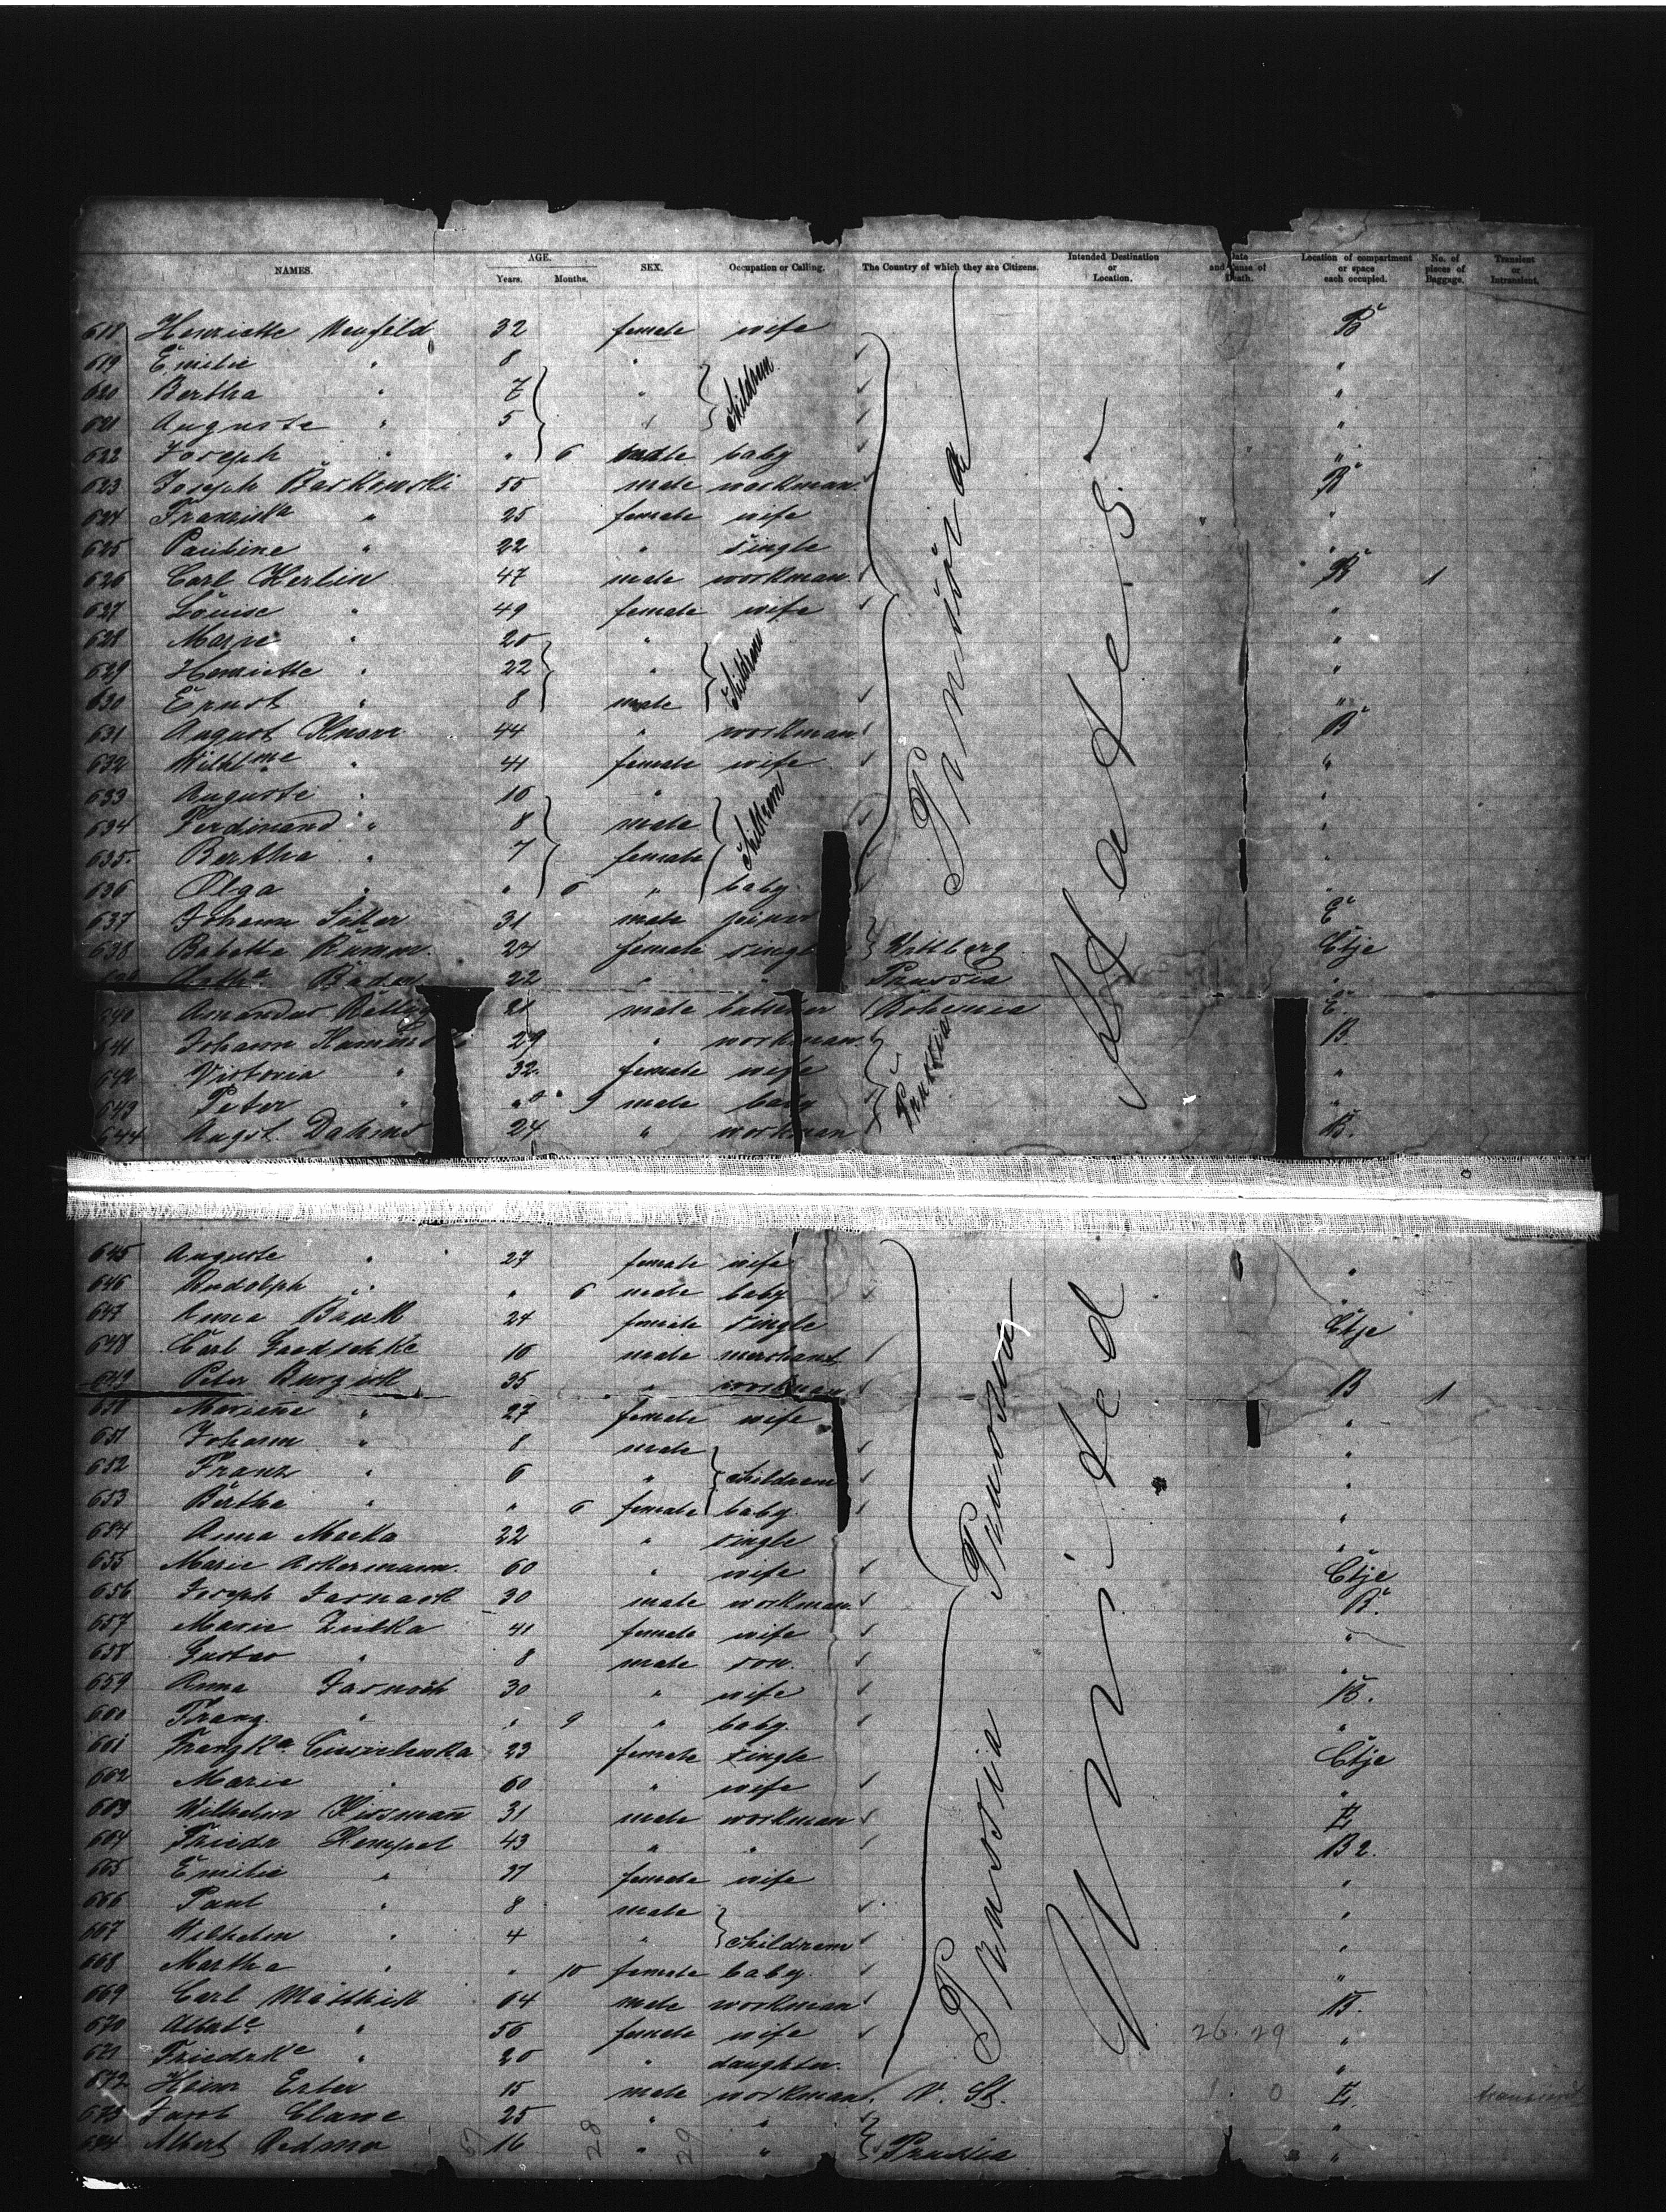 NAMES. AGE. Years. Months. SEX. Occupation or Calling. The Country of which they are Citizens. Intended Destination or Location. Date and Cause of Death. Location of compartment or space each occupied. No. of pieces of Baggage. Transient or Intransient.
618 Henriette Neufeld 32 female wife B
619 Emilie " 8 " "
620 Bertha " 7 " Children "
621 Auguste " 5 " "
622 Joseph " " 6 male baby "
623 Joseph Barkowski 55 male workman B
624 Franziska " 25 female wife "
625 Pauline " 22 " single "
626 Carl Kerlin 47 male workman B 1
627 Louise " 49 female wife "
628 Marie " 20 " "
629 Henriette " 22 " Children "
630 Ernst " 8 male "
631 August Knorr 44 " workman B
632 Wilhlme " 41 female wife "
633 Auguste " 10 " "
634 Ferdinand " 8 male Children "
635. Bertha " 7 female "
636 Olga " " 6 " baby "
Prussia
States
637 Johann 31 male joiner E
638 Babette 24 female single Ctje
22 " " Prussia "
640 Amandus 21 male Bohemia E
641 Johann 29 " workman B.
642 Victoria " 32 female wife "
643 Peter " " 9 male baby Prussia "
644 Augst. Dahms 24 " workman B.
645 Auguste " 27 female wife "
646 Rudolph " " 6 male baby "
647 Anna Bank 24 female single Ctje
648 Carl 16 male merchant
649 Peter 35 " workman B 1
650 Marianne " 27 female wife "
651 Johann " 8 male "
652 Franz " 6 " Children "
653 Bertha " " 6 female baby "
654 Anna Macka 22 " single "
655 Marie Ackermann 60 " wife Ctje
656 Joseph 30 male workman B.
657 Marie 41 female wife "
658 Gustav " 8 male son "
659 Anna 30 " wife B.
660 Franz " " 9 " baby "
661 23 female single Ctje
662 Marie " 60 " wife "
663 Wilhelm 31 male workman E
664 Friedr Hempel 43 " " B 2.
665 Emilie " 37 female wife "
666 Paul " 8 male "
667 Wilhelm " 4 " Children "
668 Martha " " 10 female baby "
669 Carl 64 male workman B.
670 " 56 female wife "
671 Friedrke " 20 " daughter "
Prussia
Prussia
United
26. 29
672 Heinr Erler 15 male workman V. St. 1. 0 E. transient
673 Jacob 25 " " "
674 Albert 16 " " Prussia "
28
29